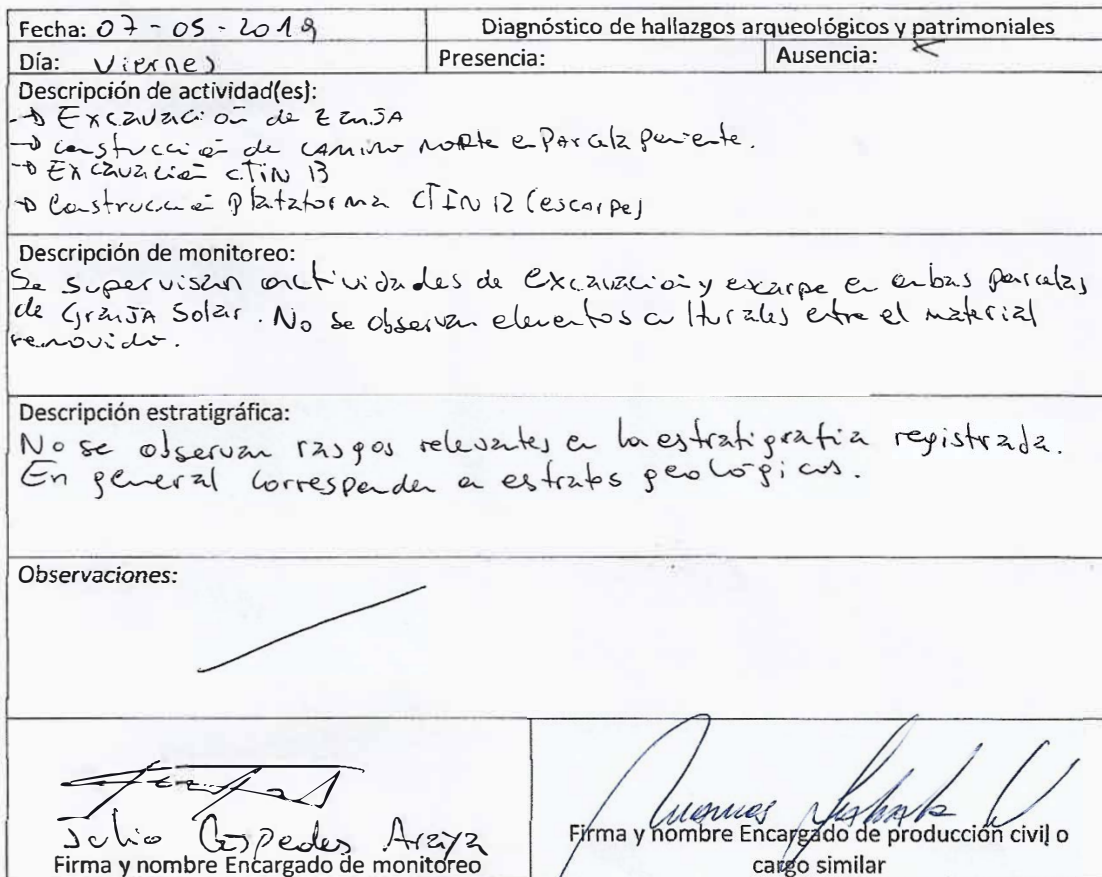 Fecha: 07-05-2019
Diagnóstico de hallazgos arqueológicos y patrimoniales
Día: Viernes
Presencia:
Ausencia: X
Descripción de actividad(es):
→ Excavación de zanja
→ construcción de camino norte en Parcela poniente.
→ Excavación CTIN 13
→ Construcción Plataforma CTIN 12 (escarpe)
Descripción de monitoreo:
Se supervisan actividades de excavación y exarpe en anbas parcelas
de Granja Solar. No se observan elementos culturales entre el material
removido.
Descripción estratigráfica:
No se observan rasgos relevantes en la estratigrafía registrada.
En general corresponden a estratos geológicos.
Observaciones:
Julio Céspedes Araya
Firma y nombre Encargado de monitoreo
Firma y nombre Encargado de producción civil o
cargo similar